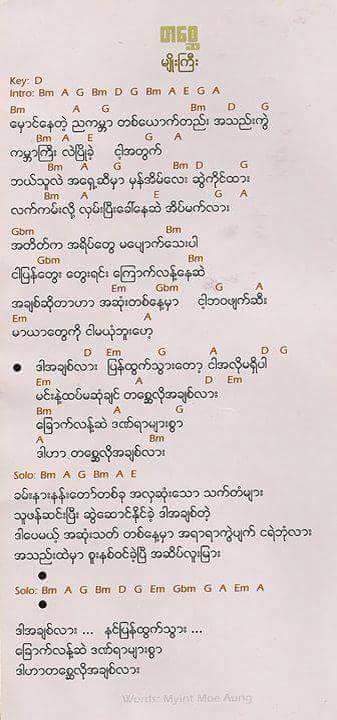 တစ္ဆေ
မျိုးကြီး
Key: D
Intro: Bm A G Bm D G Bm A E G A
Bm A G Bm D G
မှောင်နေတဲ့ ညကမ္ဘာ တစ်ယောက်တည်း အသည်းကွဲ
Bm A E G A
ကမ္ဘာကြီး လဲပြိုခဲ့ ငါ့အတွက်
Bm A G Bm D G
ဘယ်သူလဲ အရှေ့ဆီမှာ မှန်အိမ်လေး ဆွဲကိုင်ထား
Bm A E G A
လက်ကမ်းလို့ လှမ်းပြီးခေါ်နေဆဲ အိပ်မက်လား
Gbm Bm
အတိတ်က အရိပ်တွေ မပျောက်သေးပါ
Gbm Bm
ငါပြန်တွေး တွေးရင်း ကြောက်လန့်နေဆဲ
Em Gbm G A
အချစ်ဆိုတာဟာ အဆုံးတစ်နေ့မှာ ငါ့ဘဝဖျက်ဆီး
Em A
မာယာတွေကို ငါမယုံဘူးဟေ့
D Em G A D G
● ဒါအချစ်လား ပြန်ထွက်သွားတော့ ငါအလိုမရှိပါ
Em A D Em
မင်းနဲ့ထပ်မဆုံချင် တစ္ဆေလိုအချစ်လား
Bm A G
ခြောက်လန့်ဆဲ ဒဏ်ရာများစွာ
A Bm
ဒါဟာ တစ္ဆေလိုအချစ်လား
Solo: Bm A G Bm A E
ခမ်းနားနန်းတော်တစ်ခု အလှဆုံးသော သက်တံများ
သူဖန်ဆင်းပြီး ဆွဲဆောင်နိုင်ခဲ့ ဒါအချစ်တဲ့
ဒါပေမယ့် အဆုံးသတ် တစ်နေ့မှာ အရာရာကွဲပျက် ငရဲဘုံလား
အသည်းထဲမှာ စူးနစ်ဝင်ခဲ့ပြီ အဆိပ်လူးမြား
●
Solo: Bm A G Bm D G Em Gbm G A Em A
●
ဒါအချစ်လား ... နင်ပြန်ထွက်သွား ...
ခြောက်လန့်ဆဲ ဒဏ်ရာများစွာ
ဒါဟာတစ္ဆေလိုအချစ်လား
Words: Myint Moe Aung